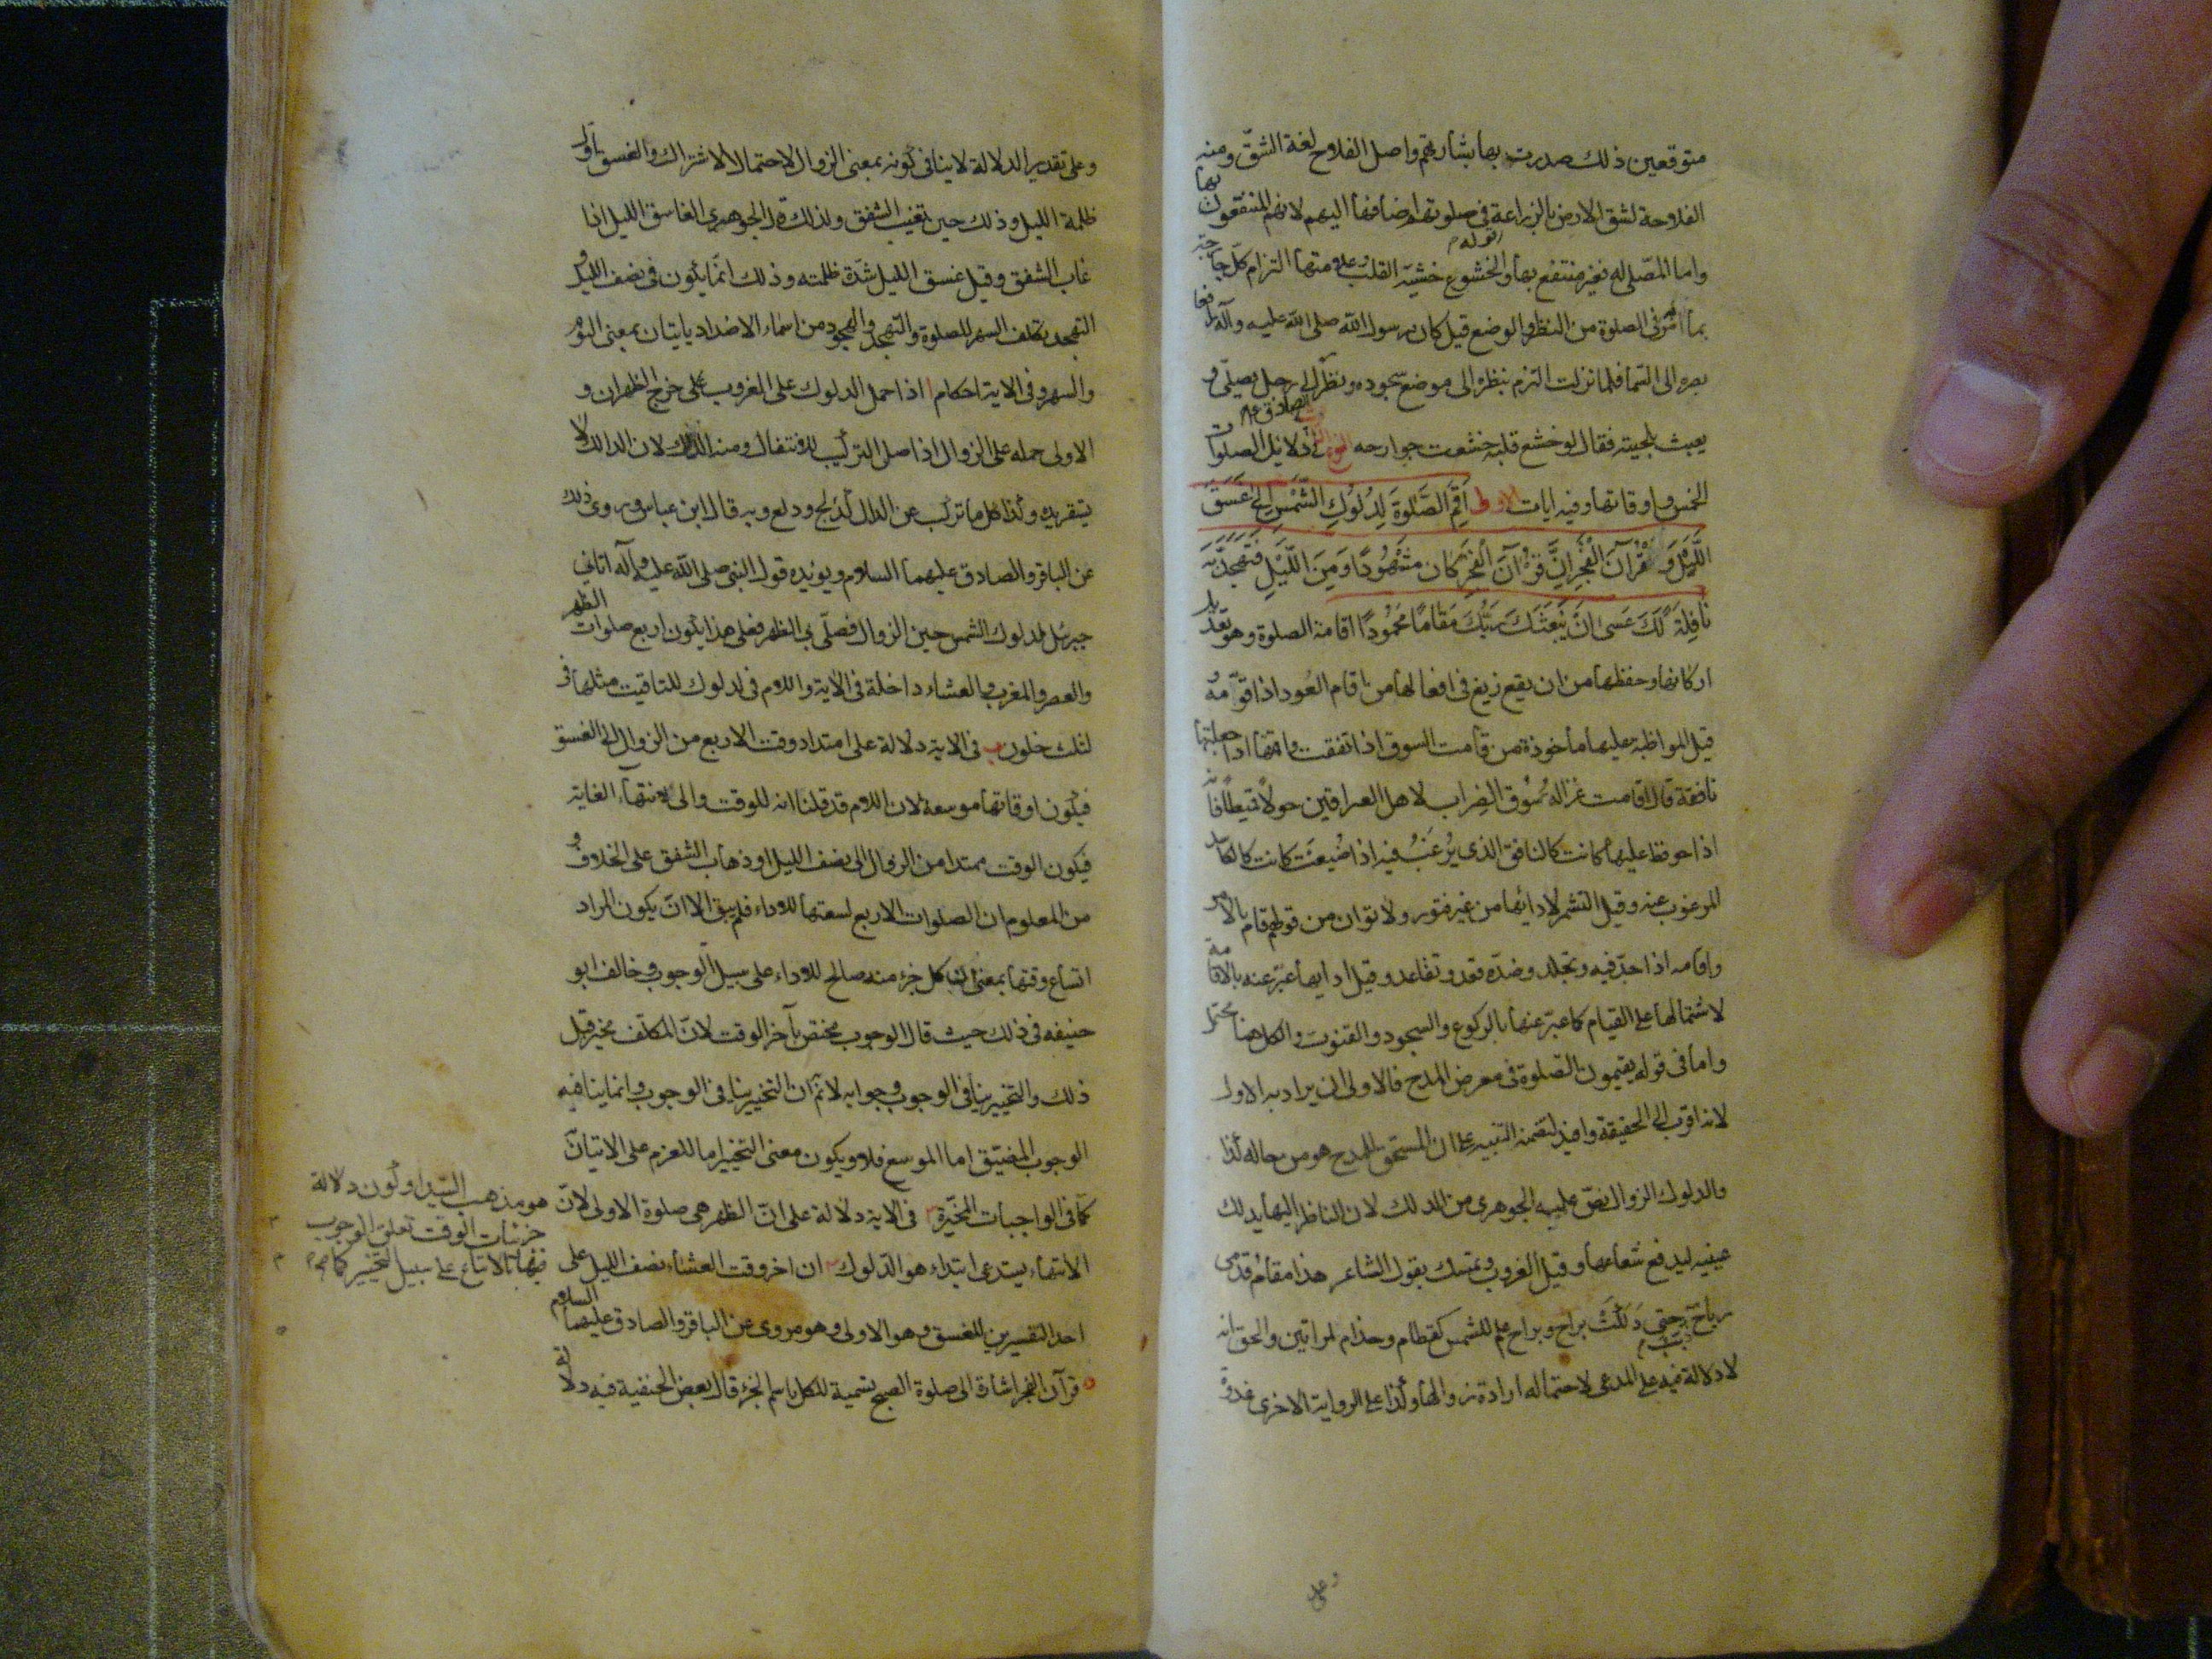 متوقعين ذلك صدرت بها بشارتهم واصل الفلاح لغة الشق ومنه
الفلاحة لشق الارض بالزراعة في صلوتهم اضافها اليهم لانهم المنتفعون بها
واما المصلى له فغير منتفع بها والخشوع خشية القلب وعلامتها التزام كل جارحة
بما امر في الصلوة من النظر والوضع قيل كان رسول الله صلى الله عليه وآله رافعا
بصره الى السما فلما نزلت التزم بنظره الى موضع سجوده ونظر الى رجل يصلي و
يعبث بلحيته فقال لو خشع قلبه خشعت جوارحه دلائل الصلوات
الخمس واوقاتها وفيه ايات الاولى اَقِمِ الصَّلٰوةَ لِدُلُوكِ الشَّمْسِ اِلىٰ غَسَقِ
اللَّيْلِ وَقُرْآنَ الْفَجْرِ اِنَّ قُرْآنَ الْفَجْرِ كَانَ مَشْهُودًا وَمِنَ اللَّيْلِ فَتَهَجَّدْ بِهِ
نَافِلَةً لَكَ عَسىٰ اَنْ يَبْعَثَكَ رَبُّكَ مَقَامًا مَحْمُودًا اقامة الصلوة وهو تعديل
اركانها وحفظها من ان يقع زيغ في افعالها من اقام العود اذا قوّمه و
قيل المواظبة عليها مأخوذة من قامت السوق اذا نفقت واقمتها اذا جعلتها
نافقة قال اقامت غزالة سُوق الضِراب لاهل العراقين حولا قميطا فانه
اذا حوفظ عليها كانت كالنافق الذي يُرغب فيه اذا ضُيعت كانت كالكاسد
المرغوب عنه وقيل التشمر لادائها من غير فتور ولا توان من قولهم قام بالامر
واقامه اذا جدّ فيه وتجلد وضدّه قعد وتقاعد وقيل ادايها عبّر عنه بالاقامة
لاشتمالها على القيام كما عبّر عنها بالركوع والسجود والقنوت والكل هنا محتمل
واما في قوله يقيمون الصلوة في معرض المدح فالاولى ان يراد به الاول
لانه اقرب الى الحقيقة وافيد لتضمنه التنبيه على ان المستحق للمدح هو من حاله كذا
والدلوك الزوال نصّ عليه الجوهري من الدلك لان الناظر اليها يدلك
عينيه ليدفع شعاعها وقيل الغروب وتمسك بقول الشاعر هذا مقام قدمي
رباح حتى دلكت براح وبراح علم للشمس كقطام وحذام لمراتين والحق انه
لا دلالة فيه على المدعى لاحتماله ارادة زوالها وكذا على الرواية الاخرى غدوة
وعلى
وعلى تقدير الدلالة لا ينافي كونه بمعنى الزوال لاحتمال الاشتراك والغسق اول
ظلمة الليل وذلك حين تغيب الشفق ولذلك قال الجوهري الغاسق الليل اذا
غاب الشفق وقيل غسق الليل شدة ظلمته وذلك انما يكون في نصف الليل و
التهجد تكلف السهر للصلوة والتهجد والهجود من اسماء الاضداد ياتيان بمعنى النوم
والسهر وفي الاية احكام ا اذا حمل الدلوك على الغروب على خرج الظهران و
الاولى حمله على الزوال اذ اصل التركيب للانتقال ومنه الدلك لان الدالك لا
يستقر يده وكذا كل ما تركب عن الدال كدلج ودلع وبه قال ابن عباس وروي ذلك
عن الباقر والصادق عليهما السلام ويؤيده قول النبي صلى الله عليه وآله اتاني
جبرئيل لدلوك الشمس حين الزوال فصلّى بي الظهر فعلى هذا يكون اربع صلوات الظهر
والعصر والمغرب والعشاء داخلة في الاية واللام في لدلوك للتاقيت مثلها في
لثلث خلون ب في الاية دلالة على امتداد وقت الاربع من الزوال الى الغسق
فيكون اوقاتها موسعة لان اللام قد قلنا انه للوقت والى لانتهاء الغاية
فيكون الوقت ممتدا من الزوال الى نصف الليل او ذهاب الشفق على الخلاف و
من المعلوم ان الصلوات الاربع لسعتها للاداء فلم يبق الا ان يكون المراد
اتساع وقتها بمعنى كل جزء منه صالح للاداء على سبيل الوجوب وخالف ابو
حنيفه في ذلك حيث قال الوجوب مختص بآخر الوقت لانّ المكلف مخير قبل
ذلك والتخيير ينافي الوجوب وجوابه لا نمّ ان التخيير ينافي الوجوب وانما ينافيه
الوجوب المضيّق اما الموسع فلا ويكون معنى التخيير اما للعزم على الاتيان
كما في الواجبات المخيّرة في الاية دلالة على انّ الظهر هي صلوة الاولى لانّ
الانتهاء يستدعي ابتداء هو الدلوك ان اخر وقت العشاء نصف الليل على
احد التفسيرين للغسق وهو الاولى وهو مروي عن الباقر والصادق عليهما السلام
ه قرآن الفجر اشارة الى صلوة الصبح تسمية للكل باسم الجزء قال بعض الحنفية فيه دلالة
هو مذهب السيد او كون دلالة
جزئيات الوقت تعلق الوجوب
فيها بالاتباع على سبيل التخيير كما